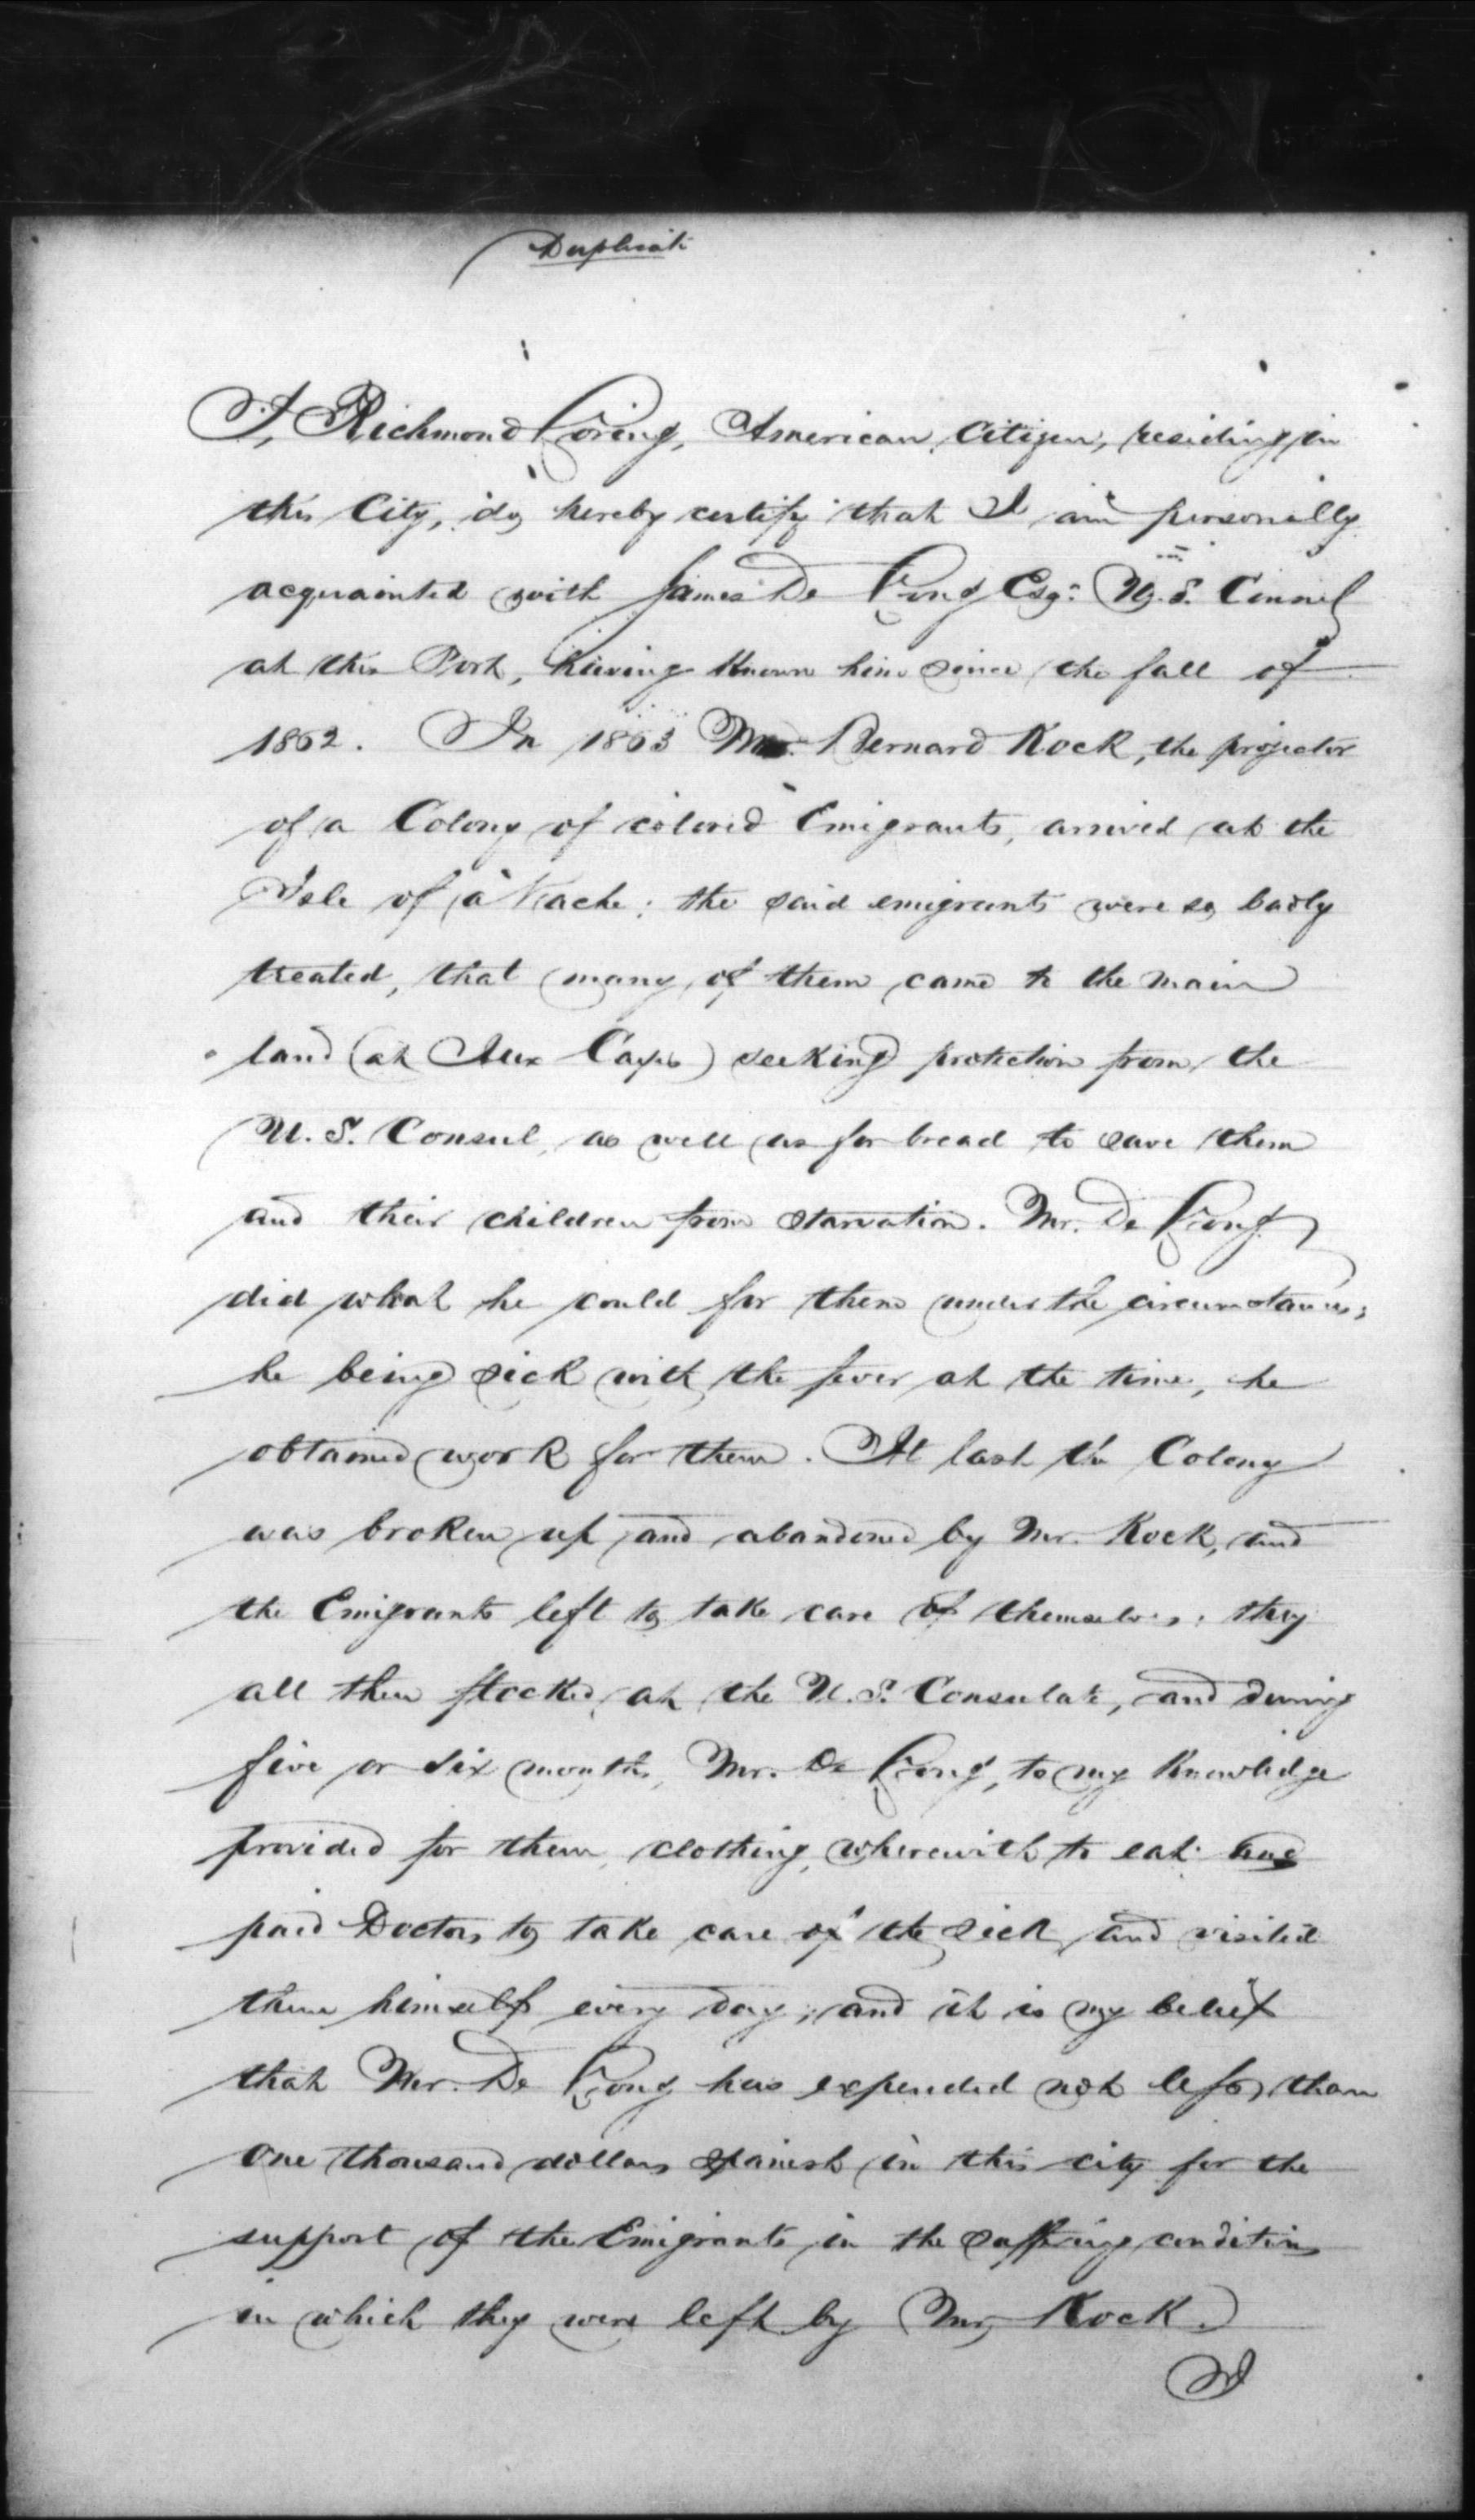 Duplicate
I, Richmond Loring, American Citizen, residing in
this City, do, hereby certify that I am personally
acquainted with James De Long Esqr. U.S. Consul
at this Port, having known him since the fall of
1862. In 1863 Mr. Bernard Kock, the projector
of a Colony of colored Emigrants, arrived at the
Isle of a'Vache; the said emigrants were so badly
treated, that many of them came to the main
land (at Aux Cayes) seeking protection from the
U.S. Consul, as well as for bread to save them
and their children from starvation. Mr. De Long
did what he could for them under the circumstances;
he being sick with the fever at the time, he
obtained work for them. At last the Colony
was broken up and abandoned by Mr. Kock, and
the Emigrants left to take care of themselves; they
all then flocked at the U.S. Consulate, and during
five or six months, Mr. De Long, to my Knowledge
provided for them, clothing, wherewith to eat and
paid Doctors to take care of the sick and visited
them himself every day; and it is my belief
that Mr. De Long has expended not less than
one thousand dollars spanish in this city for the
support of the Emigrants in the suffering condition
in which they were left by Mr. Kock.
I